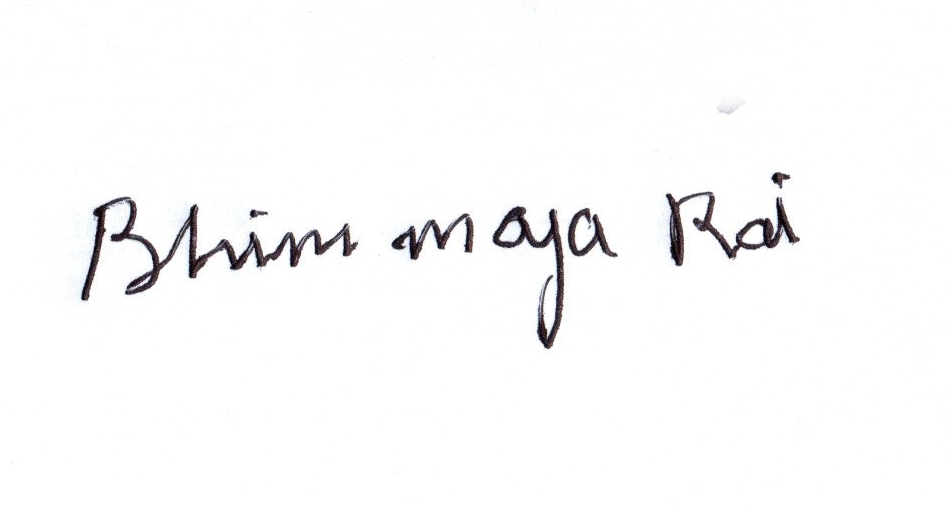 Bhim maya Rai